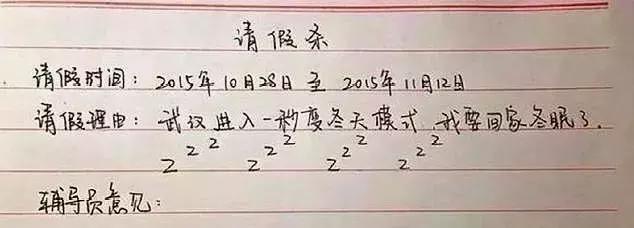 请假条
请假时间：2015年10月28日至2015年11月12日
请假理由：武汉进入一秒变冬天模式，我要回家冬眠了.
zzz zzz zzz zzz
辅导员意见：